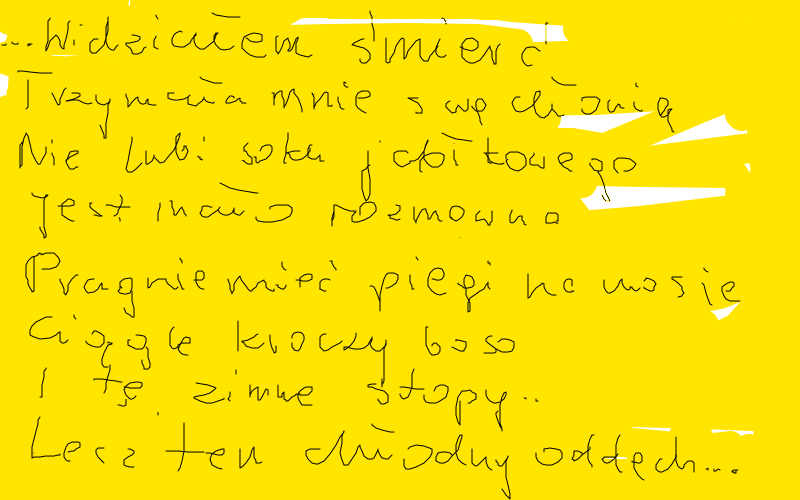 ...Widziałem śmierć
Trzymała mnie swą dłonią
Nie lubi soku jabłkowego
Jest mało rozmowna
Pragnie mieć piegi na nosie
Ciągle kroczy boso
I te zimne stopy..
Lecz ten chłodny oddech...